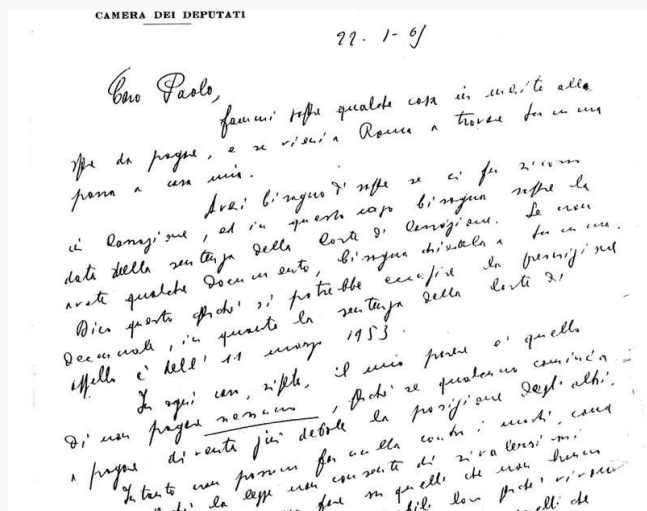 CAMERA DEI DEPUTATI
22-1-65
Caro Paolo,
fammi sapere qualche cosa in merito alla
da pagare, e se vieni a Roma a trovare
passa a casa mia.
Avrei bisogno di sapere se ci fu ricorso
in Cassazione, ed in questo caso bisogna sapere la
data della sentenza della Corte di Cassazione. Se non
avete qualche documento, bisogna chiederla a
Dico questo perché si potrebbe eccepire la prescrizione
decennale, in quanto la sentenza della Corte di
appello è dell' 11 marzo 1953.
In ogni caso, ripeto, il mio parere è quello
di non pagare nessuno, perché se qualcuno comincia
a pagare diventa più debole la posizione degli altri.
Intanto non possono far nulla contro i
la legge non consente di rivalersi
su quelli che non hanno
perché vivono
quelli che